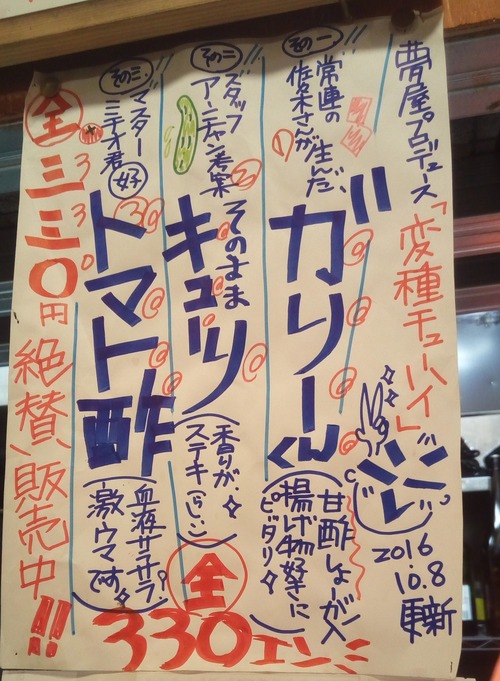 夢屋プロデュース
「変種チューハイ」
2016
10.8
更新
その一!!
常連の
佐々木さんが生んだ、
ガリーくん
(甘酢しょーが入
揚げ物好きに
ピッタリ)
その二!!
スタッフ
アーチャン考案
そのまま
キューリ
(香りが
ステキ(らしい))
その三、!!
マスター
ミテオ君 好
トマト酢
(血液サラサラ
激ウマです)
全 三三〇円 絶賛、販売中!!
全
330エン